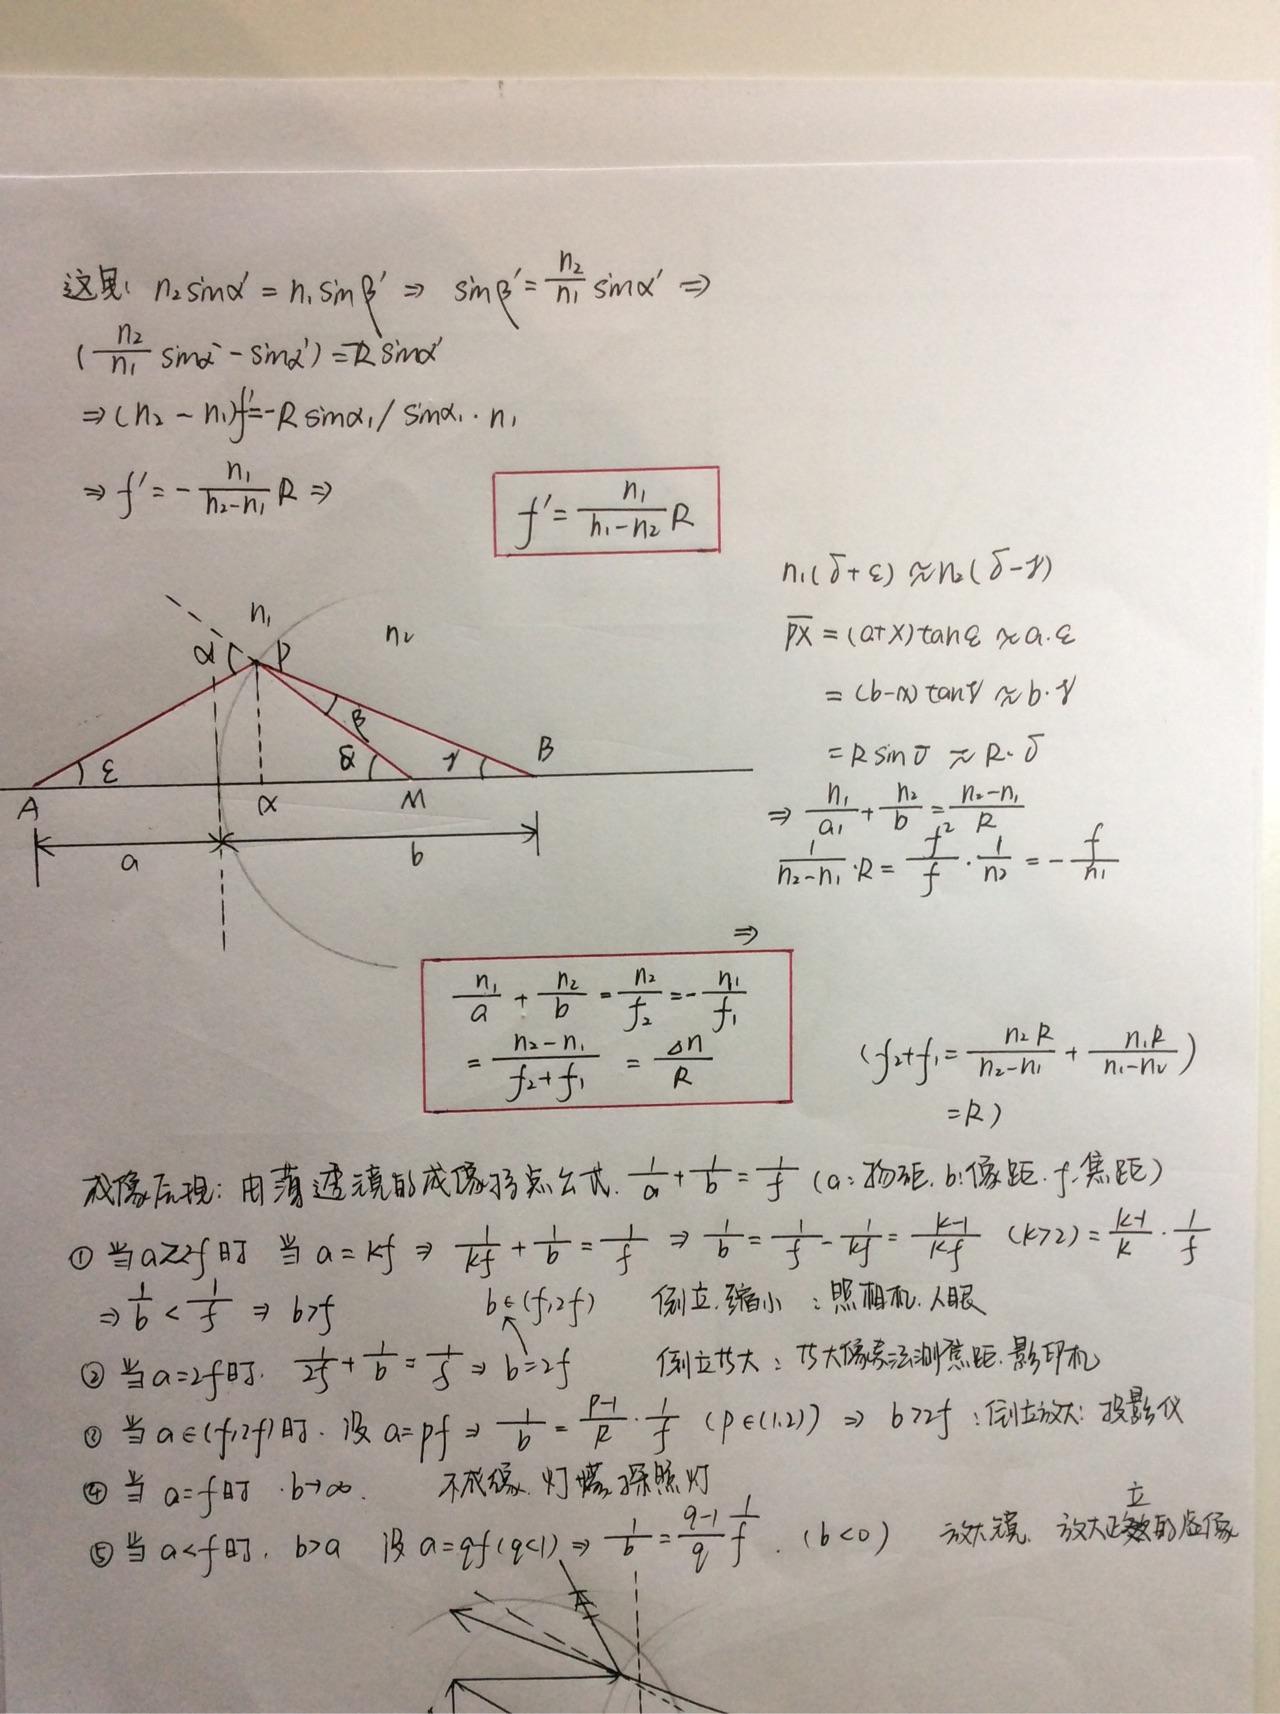 这里: n₂sinα' = n₁sinβ' ⇒ sinβ' = n₂/n₁ sinα' ⇒
(n₂/n₁ sinα' - sinα') = R sinα'
⇒ (n₂ - n₁)f' = -R sinα₁ / sinα₁ · n₁
⇒ f' = - n₁/(n₂-n₁) R ⇒
f' = n₁/(n₁-n₂) R
n₁(δ+ε) ≈ n₂(δ-γ)
PX = (a+x)tanε ≈ a·ε
= (b-x)tanγ ≈ b·γ
= R sinδ ≈ R·δ
⇒ n₁/a₁ + n₂/b = (n₂-n₁)/R
1/(n₂-n₁) · R = f²/f · 1/n₂ = - f/n₁
n₁ n₂
α P
β
ε δ γ B
A α M
a b
⇒
n₁/a + n₂/b = n₂/f₂ = - n₁/f₁
= (n₂-n₁)/(f₂+f₁) = Δn/R
(f₂+f₁ = n₂R/(n₂-n₁) + n₁R/(n₁-n₂)
=R)
成像原理: 由薄透镜的成像物点公式. 1/a + 1/b = 1/f (a:物距. b:像距. f:焦距)
① 当a≥2f时 当 a=kf ⇒ 1/kf + 1/b = 1/f ⇒ 1/b = 1/f - 1/kf = (k-1)/kf (k>2) = (k-1)/k · 1/f
⇒ 1/b < 1/f ⇒ b>f b∈(f,2f) 倒立.缩小 : 照相机.人眼
② 当a=2f时. 1/2f + 1/b = 1/f ⇒ b=2f 倒立等大 : 等大像法测焦距.影印机
③ 当a∈(f,2f)时. 设a=pf ⇒ 1/b = (p-1)/p · 1/f (p∈(1,2)) ⇒ b>2f : 倒立放大: 投影仪
④ 当 a=f时 .b→∞. 不成像. 灯塔,探照灯
⑤ 当a<f时. b>a 设 a=qf(q<1) ⇒ 1/b = (q-1)/q 1/f . (b<0) 放大镜. 放大正立的虚像